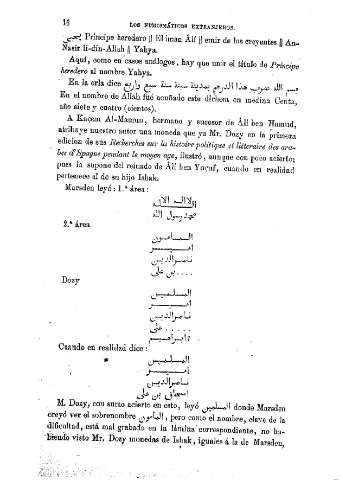 16 LOS NUMISMÁTICOS EXTRANJEROS.
يحيى Príncipe heredero || El iman Âlí || emir de los creyentes || An-
Nasir li-din-Allah || Yahya.
Aquí, como en casos análogos, hay que unir el título de Príncipe
heredero al nombre Yahya.
En la orla dice بسم الله ضرب هذا الدرهم بمدينة سبتة سنة سبع واربع
En el nombre de Allah fué acuñado este dirhem en medina Ceuta,
año siete y cuatro (cientos).
A Kaçam Al-Mamun, hermano y sucesor de Âlí ben Hamud,
atribuye nuestro autor una moneda que ya Mr. Dozy en la primera
edicion de sus Recherches sur la histoire politique et litteraire des ara-
bes d'Spagne pendant le moyen age, ilustró, aunque con poco acierto;
pues la supone del reinado de Âlí ben Yuçuf, cuando en realidad
pertenece al de su hijo Ishak.
Marsden leyó: 1.ª área:
لا اله الا الله
محمد رسول الله
2.ª área
المامون
امير
ناصر الدين
.... بن على
Dozy
المسلمين
امير
ناصر الدين
على ......
ابراهيم
Cuando en realidad dice:
المسلمين
امير
ناصر الدين
اسحاق بن على
M. Dozy, con sumo acierto en esto, leyó المسلمين donde Marsden
creyó ver el sobrenombre المامون, pero como el nombre, clave de la
dificultad, está mal grabado en la lámina correspondiente, no ha-
biendo visto Mr. Dozy monedas de Ishak, iguales á la de Marsden,